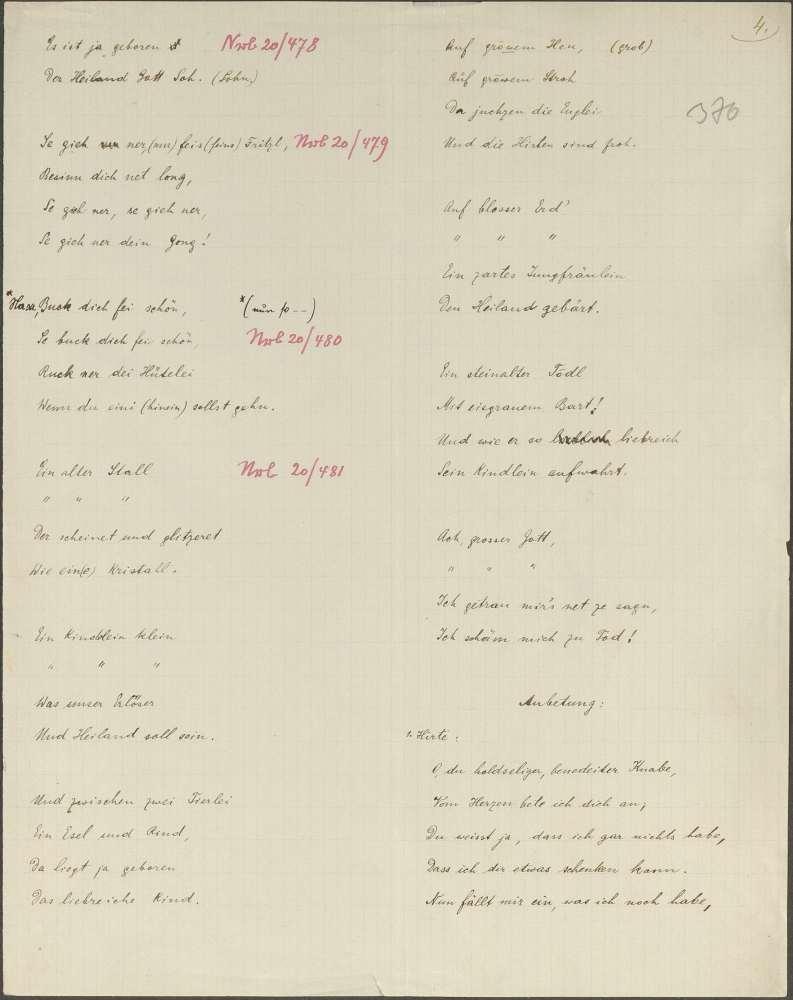 4.
Es ist ja geboren Nrol 20/478
Der Heiland Gott Soh. (Sohn)
Se gieh ner, (nur) feis (feins) Fritzl, Nrol 20/479
Besinn dich net long,
Se geh ner, se gieh ner,
Se gieh ner dein Gong!
*Hasa, Buck dich fei schön, *(nur so --)
Se buck dich fei schön, Nrol 20/480
Ruck ner dei Hütelei
Wenn du eini (hinein) sollst gehn.
Ein alter Stall Nrol 20/481
" " "
Der scheinet und glitzeret
Wie ein(e) Kristall.
Ein Kindlein klein
" " "
Was unser Erlöser
Und Heiland soll sein.
Und zwischen zwei Tierlei
Ein Esel und Rind,
Da liegt ja geboren
Das liebreiche Kind.
Auf growem Heu, (grob)
Auf growem Stroh
Da juchzen die Englei 370
Und die Hirten sind froh.
Auf blosser Erd'
" " "
Ein zartes Jungfräulein
Den Heiland gebärt.
Ein steinalter Tödl
Mit eisgrauem Bart!
Und wie er so liebreich
Sein Kindlein aufwahrt.
Ach, grosser Gott,
" " "
Ich getrau mir's net ze sagn,
Ich schäm mich zu Tod!
Anbetung:
1. Hirte:
O, du holdseliger, benedeiter Knabe,
Vom Herzen bete ich dich an,
Du weisst ja, dass ich gar nichts habe,
Dass ich dir etwas schenken kann.
Nun fällt mir ein, was ich noch habe,